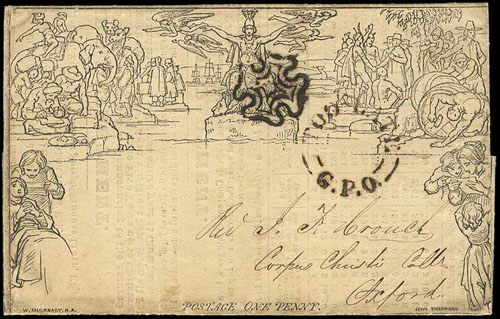 G.P.O.
Revd J. F. Crouch
Corpus Christi Coll.
Oxford.
POSTAGE ONE PENNY.
W. MULREADY, R.A.
JOHN THOMPSON